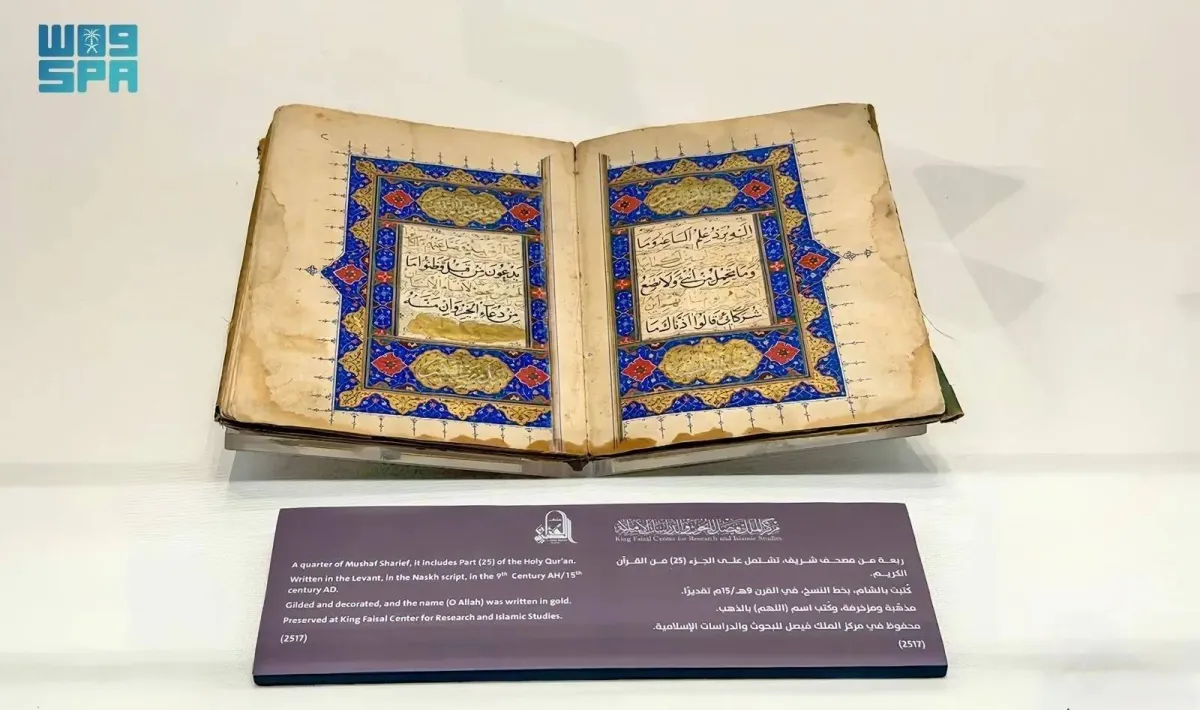 واس
SPA
إليه يرد علم الساعة وما
وما تحمل من أنثى ولا تضع
شركائى قالوا آذناك ما
يدعون من قبل وظنوا ما
من دعاء الخير وإن مسه
مركز الملك فيصل للبحوث والدراسات الإسلامية
King Faisal Center for Research and Islamic Studies
A quarter of Mushaf Sharief, it includes Part (25) of the Holy Qur'an.
Written in the Levant, in the Naskh script, in the 9th Century AH/15th
century AD.
Gilded and decorated, and the name (O Allah) was written in gold.
Preserved at King Faisal Center for Research and Islamic Studies.
(2517)
ربعة من مصحف شريف، تشتمل على الجزء (25) من القرآن
الكريم.
كُتبت بالشام، بخط النسخ، في القرن 9هـ/15م تقديرًا.
مذهّبة ومزخرفة، وكتب اسم (اللهم) بالذهب.
محفوظ في مركز الملك فيصل للبحوث والدراسات الإسلامية.
(2517)